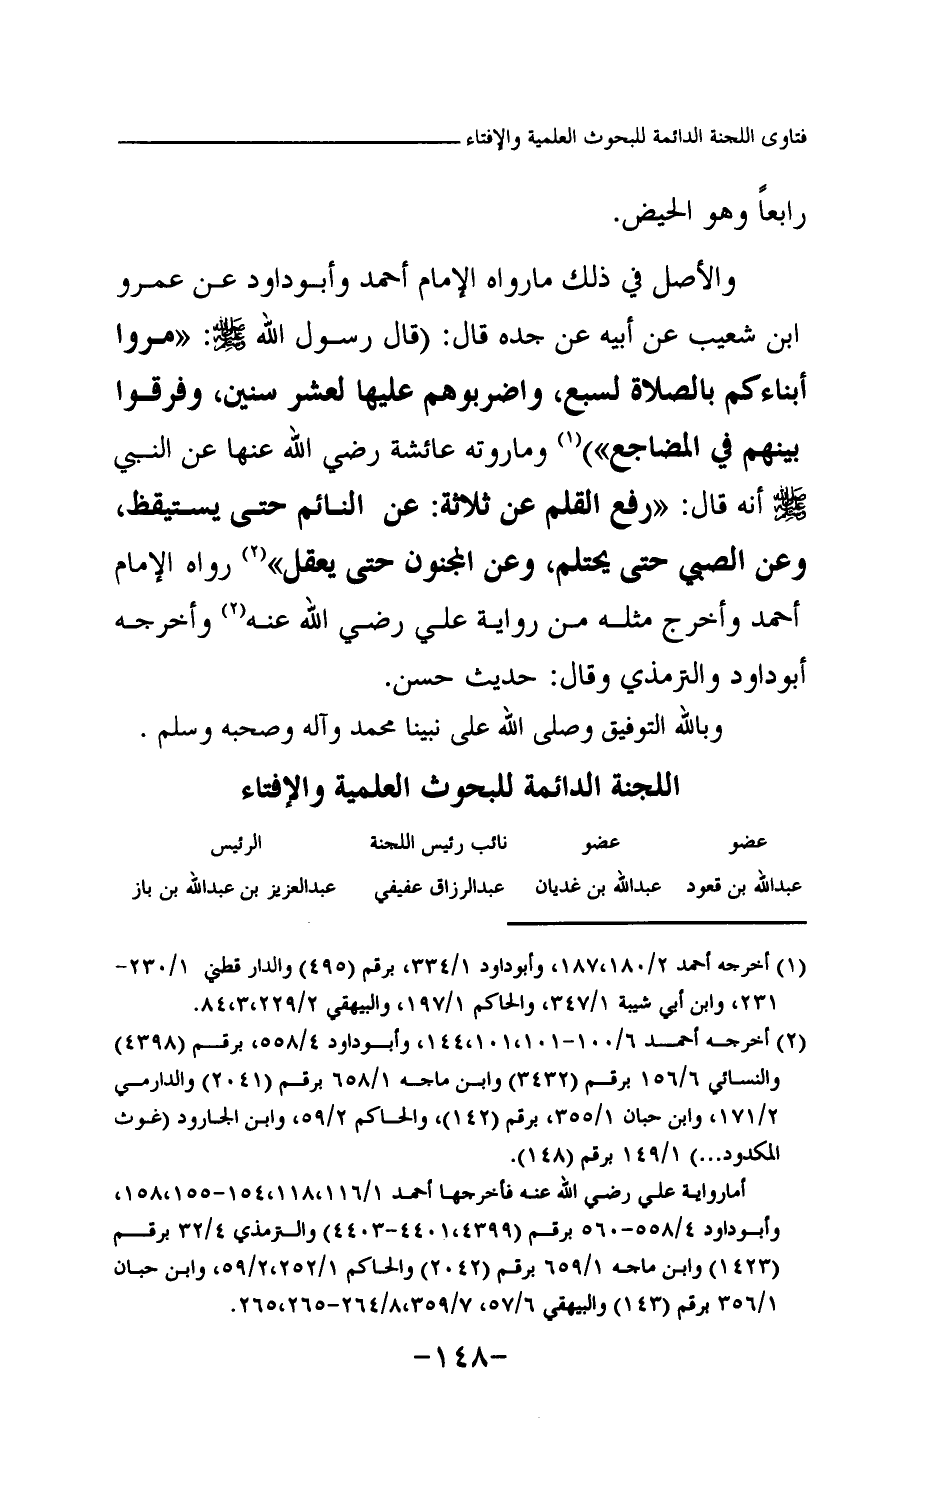 فتاوى اللجنة الدائمة للبحوث العلمية والإفتاء
رابعاً وهو الحيض.
والأصل في ذلك مارواه الإمام أحمد وأبوداود عن عمرو
ابن شعيب عن أبيه عن جده قال: (قال رسول الله ﷺ: «مروا
أبناءكم بالصلاة لسبع، واضربوهم عليها لعشر سنين، وفرقوا
بينهم في المضاجع»)(١) وماروته عائشة رضي الله عنها عن النبي
ﷺ أنه قال: «رفع القلم عن ثلاثة: عن النائم حتى يستيقظ،
وعن الصبي حتى يحتلم، وعن المجنون حتى يعقل»(٢) رواه الإمام
أحمد وأخرج مثله من رواية علي رضي الله عنه(٢) وأخرجه
أبوداود والترمذي وقال: حديث حسن.
وبالله التوفيق وصلى الله على نبينا محمد وآله وصحبه وسلم .
اللجنة الدائمة للبحوث العلمية والإفتاء
عضو عضو نائب رئيس اللجنة الرئيس
عبدالله بن قعود عبدالله بن غديان عبدالرزاق عفيفي عبدالعزيز بن عبدالله بن باز
(١) أخرجه أحمد ١٨٠/٢،١٨٧، وأبوداود ٣٣٤/١، برقم (٤٩٥) والدار قطني ٢٣٠/١-
٢٣١، وابن أبي شيبة ٣٤٧/١، والحاكم ١٩٧/١، والبيهقي ٢٢٩/٢،٨٤،٣.
(٢) أخرجه أحمد ١٠٠/٦-١٠١،١٠١،١٤٤، وأبوداود ٥٥٨/٤، برقم (٤٣٩٨)
والنسائي ١٥٦/٦ برقم (٣٤٣٢) وابن ماجه ٦٥٨/١ برقم (٢٠٤١) والدارمي
١٧١/٢، وابن حبان ٣٥٥/١، برقم (١٤٢)، والحاكم ٥٩/٢، وابن الجارود (غوث
المكدود...) ١٤٩/١ برقم (١٤٨).
أمارواية علي رضي الله عنه فأخرجها أحمد ١١٦/١،١١٨،١٥٤-١٥٥،١٥٨،
وأبوداود ٥٥٨/٤-٥٦٠ برقم (٤٣٩٩،٤٤٠١-٤٤٠٣) والترمذي ٣٢/٤ برقم
(١٤٢٣) وابن ماجه ٦٥٩/١ برقم (٢٠٤٢) والحاكم ٢٥٢/١،٥٩/٢، وابن حبان
٣٥٦/١ برقم (١٤٣) والبيهقي ٥٧/٦، ٣٥٩/٧،٢٦٤/٨-٢٦٥،٢٦٥.
-١٤٨-